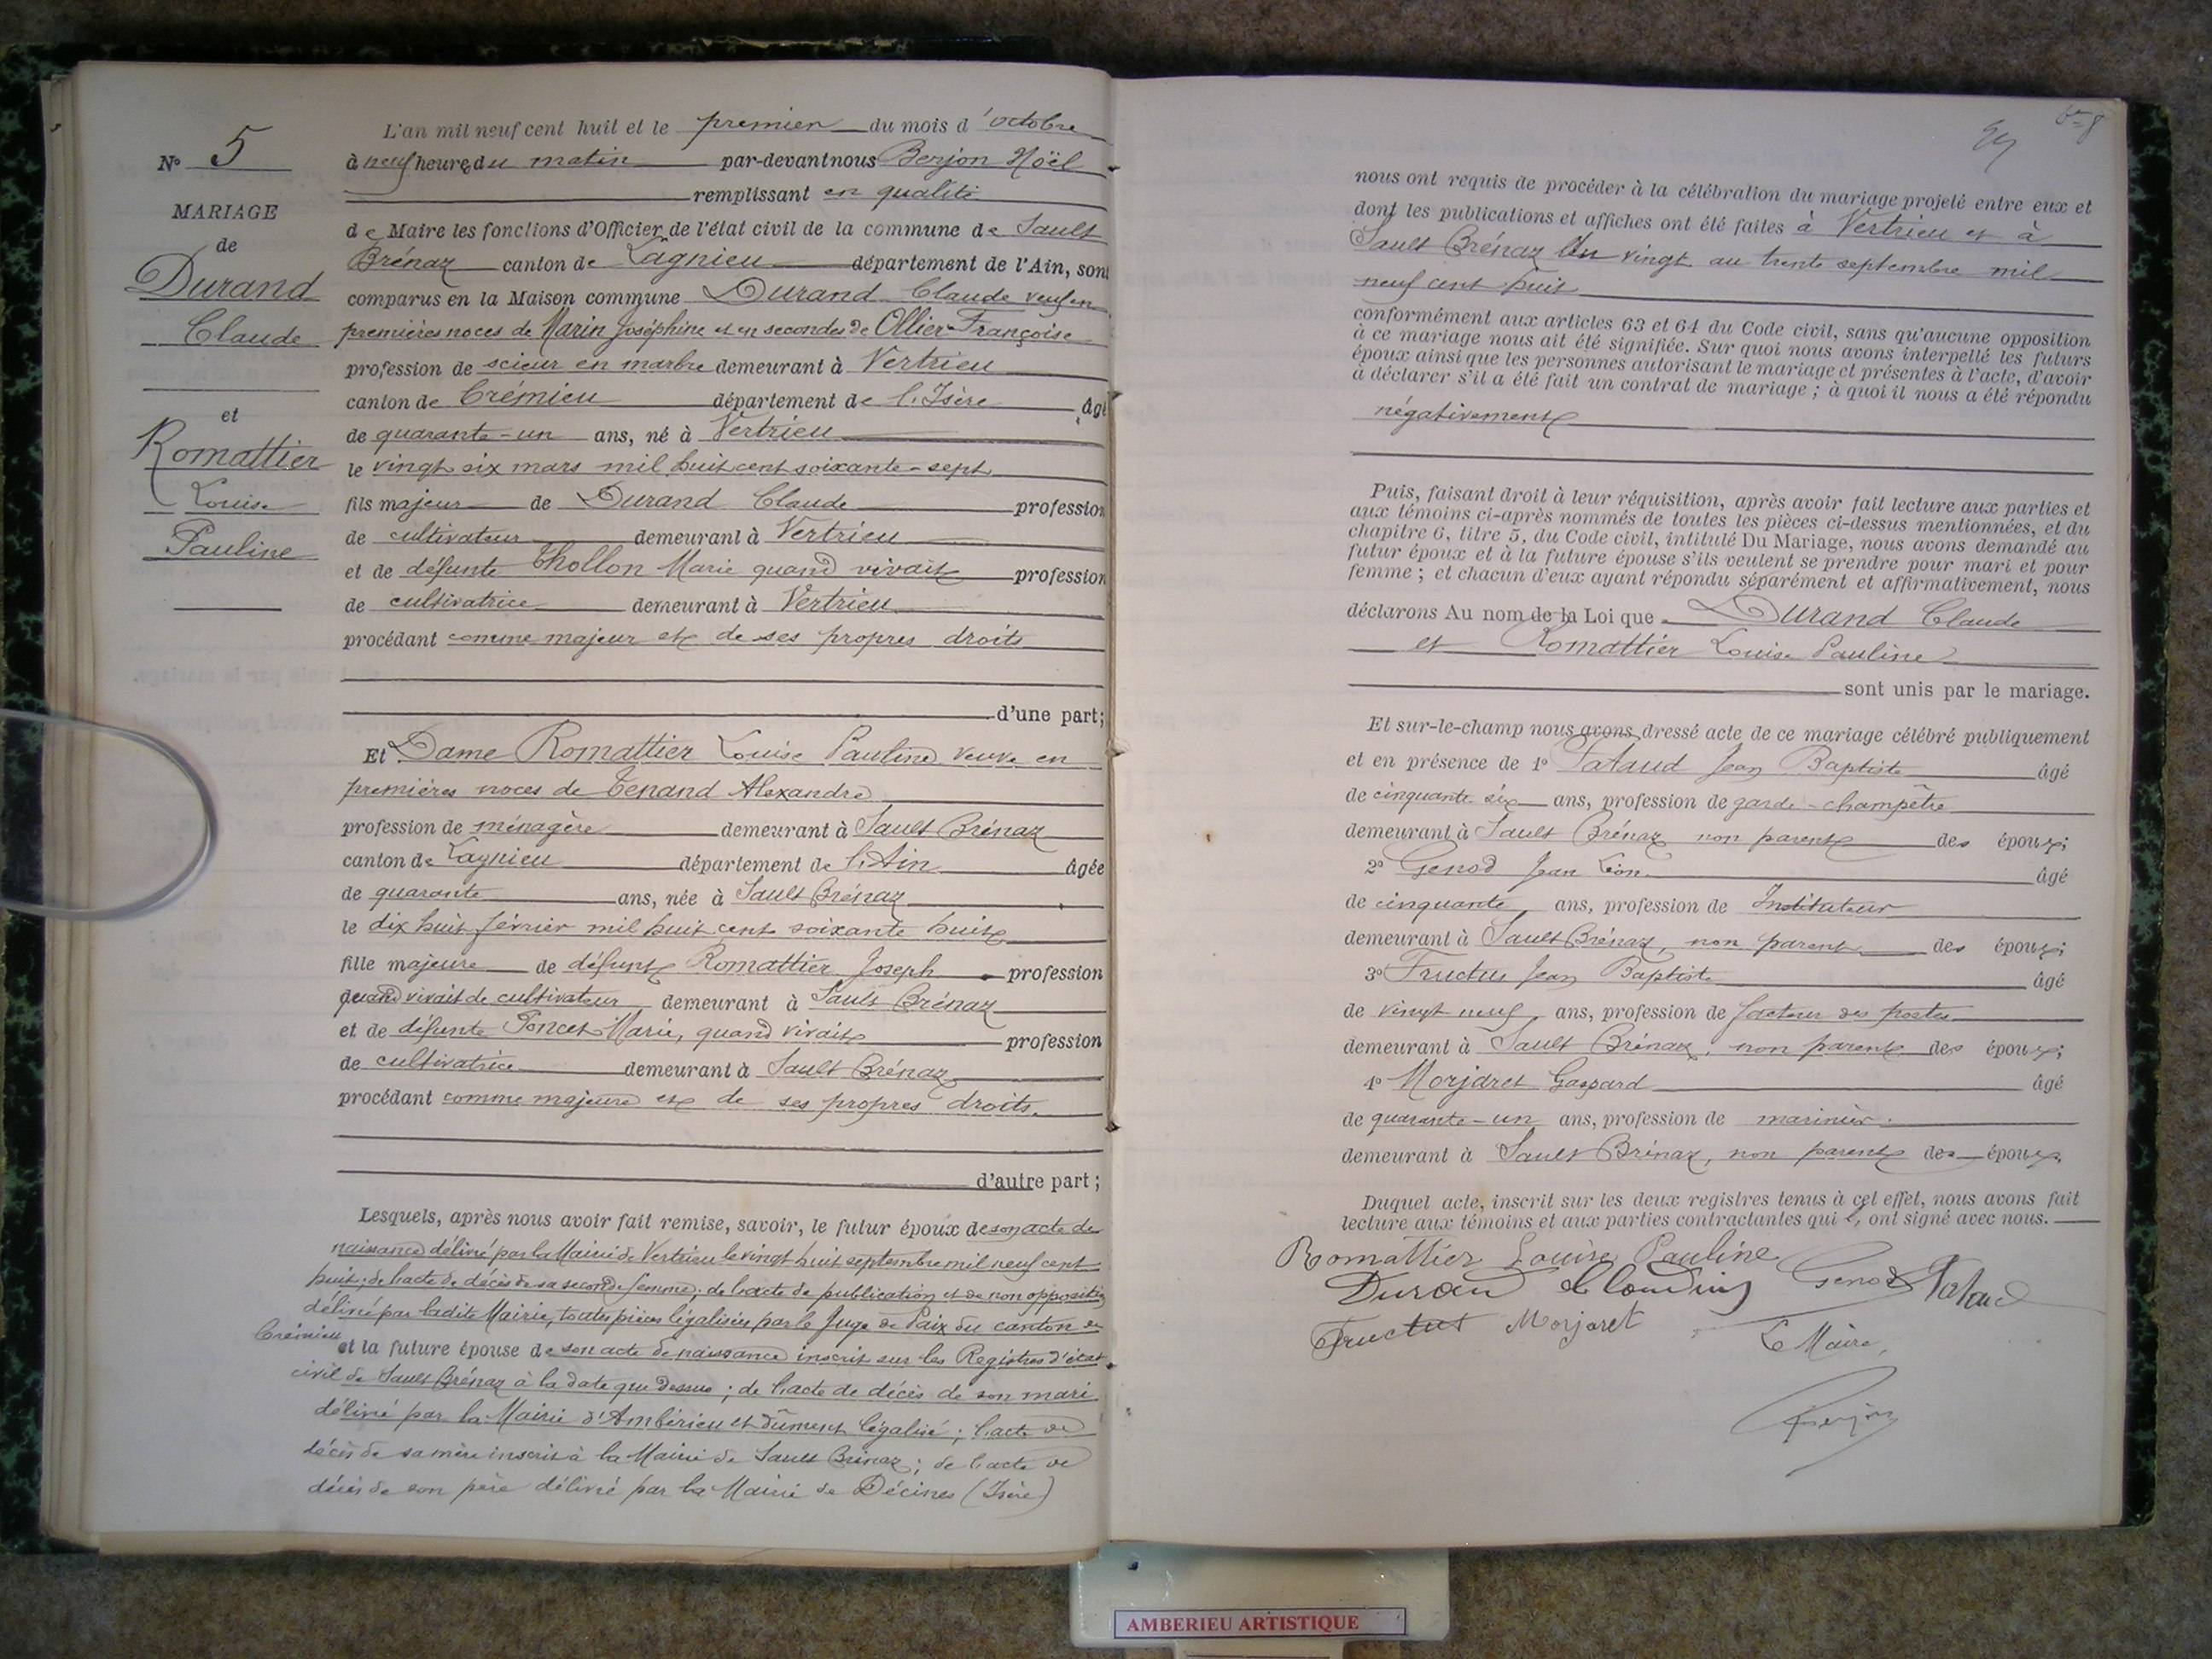 N° 5
MARIAGE
de
Durand
Claude
et
Romattier
Louise
Pauline
L'an mil neuf cent huit et le premier du mois d'octobre
à neuf heures du matin par-devant nous Berjon Noël
remplissant en qualité
de Maire les fonctions d'Officier de l'état civil de la commune de Sault
Brénaz canton de Lagnieu département de l'Ain, sont
comparus en la Maison commune Durand Claude veuf en
premières noces de Marin Joséphine et en secondes de Ollier Françoise
profession de scieur en marbre demeurant à Vertrieu
canton de Crémieu département de l'Isère âgé
de quarante-un ans, né à Vertrieu
le vingt six mars mil huit cent soixante-sept
fils majeur de Durand Claude profession
de cultivateur demeurant à Vertrieu
et de défunte Thollon Marie quand vivait profession
de cultivatrice demeurant à Vertrieu
procédant comme majeur et de ses propres droits
d'une part;
Et Dame Romattier Louise Pauline veuve en
premières noces de Tenand Alexandre
profession de ménagère demeurant à Sault Brénaz
canton de Lagnieu département de l'Ain âgée
de quarante ans, née à Sault Brénaz
le dix huit février mil huit cent soixante huit
fille majeure de défunt Romattier Joseph profession
quand vivait de cultivateur demeurant à Sault Brénaz
et de défunte Poncet Marie, quand vivait profession
de cultivatrice demeurant à Sault Brénaz
procédant comme majeure et de ses propres droits.
d'autre part;
Lesquels, après nous avoir fait remise, savoir, le futur époux de son acte de
naissance délivré par la Mairie de Vertrieu le vingt huit septembre mil neuf cent
huit; de l'acte de décès de sa seconde femme; de l'acte de publication et de non opposition
délivré par ladite Mairie, toutes pièces légalisées par le Juge de Paix du canton de
Crémieu et la future épouse de son acte de naissance inscrit sur les Registres d'état
civil de Sault Brénaz à la date que dessus; de l'acte de décès de son mari
délivré par la Mairie d'Ambérieu et dûment légalisé; l'acte de
décès de sa mère inscrit à la Mairie de Sault Brénaz; de l'acte de
décès de son père délivré par la Mairie de Décines (Isère)
nous ont requis de procéder à la célébration du mariage projeté entre eux et
dont les publications et affiches ont été faites à Vertrieu et à
Sault Brénaz du vingt au trente septembre mil
neuf cent huit
conformément aux articles 63 et 64 du Code civil, sans qu'aucune opposition
à ce mariage nous ait été signifiée. Sur quoi nous avons interpellé les futurs
époux ainsi que les personnes autorisant le mariage et présentes à l'acte, d'avoir
à déclarer s'il a été fait un contrat de mariage; à quoi il nous a été répondu
négativement
Puis, faisant droit à leur réquisition, après avoir fait lecture aux parties et
aux témoins ci-après nommés de toutes les pièces ci-dessus mentionnées, et du
chapitre 6, titre 5, du Code civil, intitulé Du Mariage, nous avons demandé au
futur époux et à la future épouse s'ils veulent se prendre pour mari et pour
femme; et chacun d'eux ayant répondu séparément et affirmativement, nous
déclarons Au nom de la Loi que Durand Claude
et Romattier Louise Pauline
sont unis par le mariage.
Et sur-le-champ nous avons dressé acte de ce mariage célébré publiquement
et en présence de 1° Pataud Jean Baptiste âgé
de cinquante six ans, profession de garde-champêtre
demeurant à Sault Brénaz non parent des époux;
2° Genod Jean Léon âgé
de cinquante ans, profession de Instituteur
demeurant à Sault Brénaz, non parent des époux;
3° Fructus Jean Baptiste âgé
de vingt neuf ans, profession de facteur des postes
demeurant à Sault Brénaz, non parent des époux;
4° Morjaret Gaspard âgé
de quarante-un ans, profession de marinier.
demeurant à Sault Brénaz, non parent des époux,
Duquel acte, inscrit sur les deux registres tenus à cet effet, nous avons fait
lecture aux témoins et aux parties contractantes qui ont signé avec nous.
Romattier Louise Pauline
Duran Genod Pataud
Fructus Morjaret Le Maire,
Berjon
AMBERIEU ARTISTIQUE